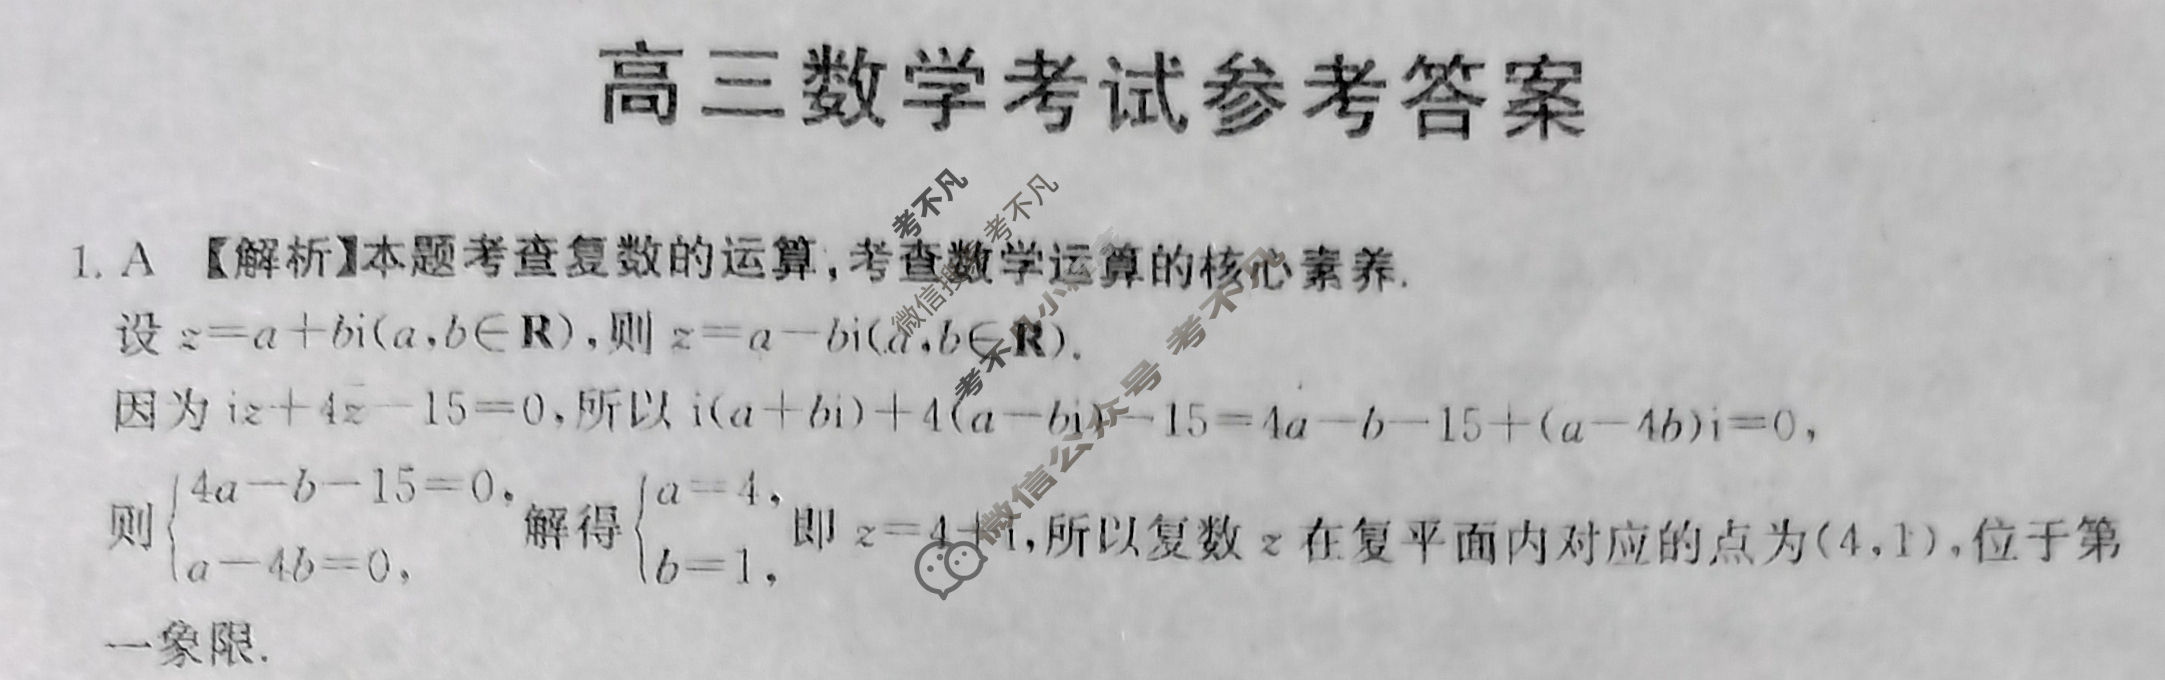 高三数学考试参考答案
1. A 【解析】本题考查复数的运算,考查数学运算的核心素养.
设 z=a+bi(a,b∈R),则 z=a-bi(a,b∈R).
因为 iz+4z̄-15=0,所以 i(a+bi)+4(a-bi)-15=4a-b-15+(a-4b)i=0,
则{4a-b-15=0, a-4b=0, 解得{a=4, b=1, 即 z=4+i,所以复数 z 在复平面内对应的点为(4,1),位于第
一象限.
考不凡
考不凡
微信搜
考不凡小
微信公众号 考不凡